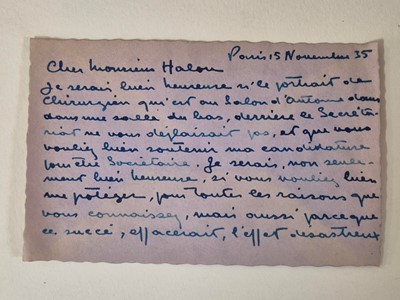 Paris 15 Novembre 35
Cher Monsieur Halou
Je serais bien heureuse si le portrait de
Chirurgien qui est au Salon d'Automne dans
dans une salle du bas, derrière le Secréta-
riat ne vous déplaisait pas, et que vous
vouliez bien soutenir ma candidature
pour être Sociétaire. Je serais, non seule-
ment bien heureuse, si vous vouliez bien
me protéger, pour toutes les raisons que
vous connaissez, mais aussi parce que
ce succé, effacerait, l'effet désastreux